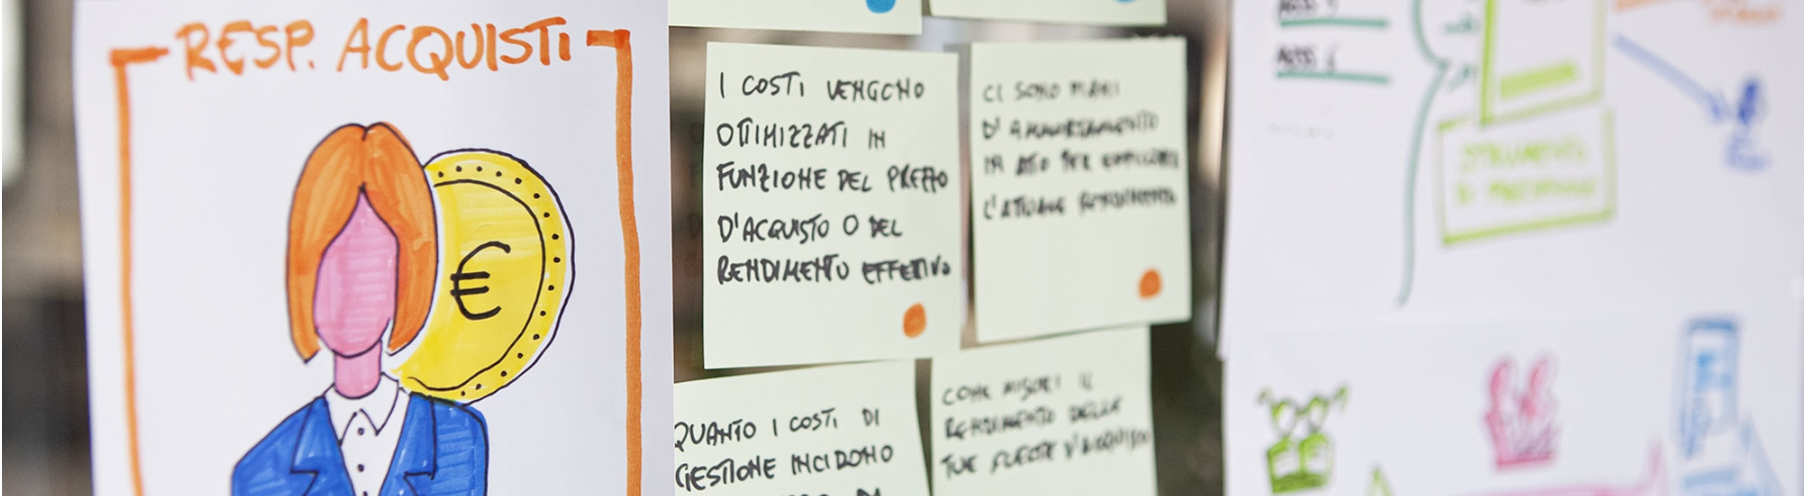 RESP. ACQUISTI
I COSTI VENGONO
OTTIMIZZATI IN
FUNZIONE DEL PREZZO
D'ACQUISTO O DEL
RENDIMENTO EFFETTIVO
CI SONO PIANI
D'AMMORTAMENTO
IN ATTO PER
L'ATTUALE
QUANTO I COSTI DI
GESTIONE INCIDONO
DI
COME MISURI IL
RENDIMENTO DELLE
TUE SCELTE D'ACQUISTO
€
STRUMENTI
DI